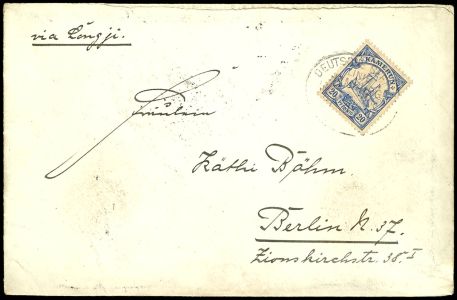 via Longji.
DEUTSCH
KAMERUN
20 20
Fräulein
Käthe Böhm.
Berlin N. 37.
Zionskirchstr. 38.I